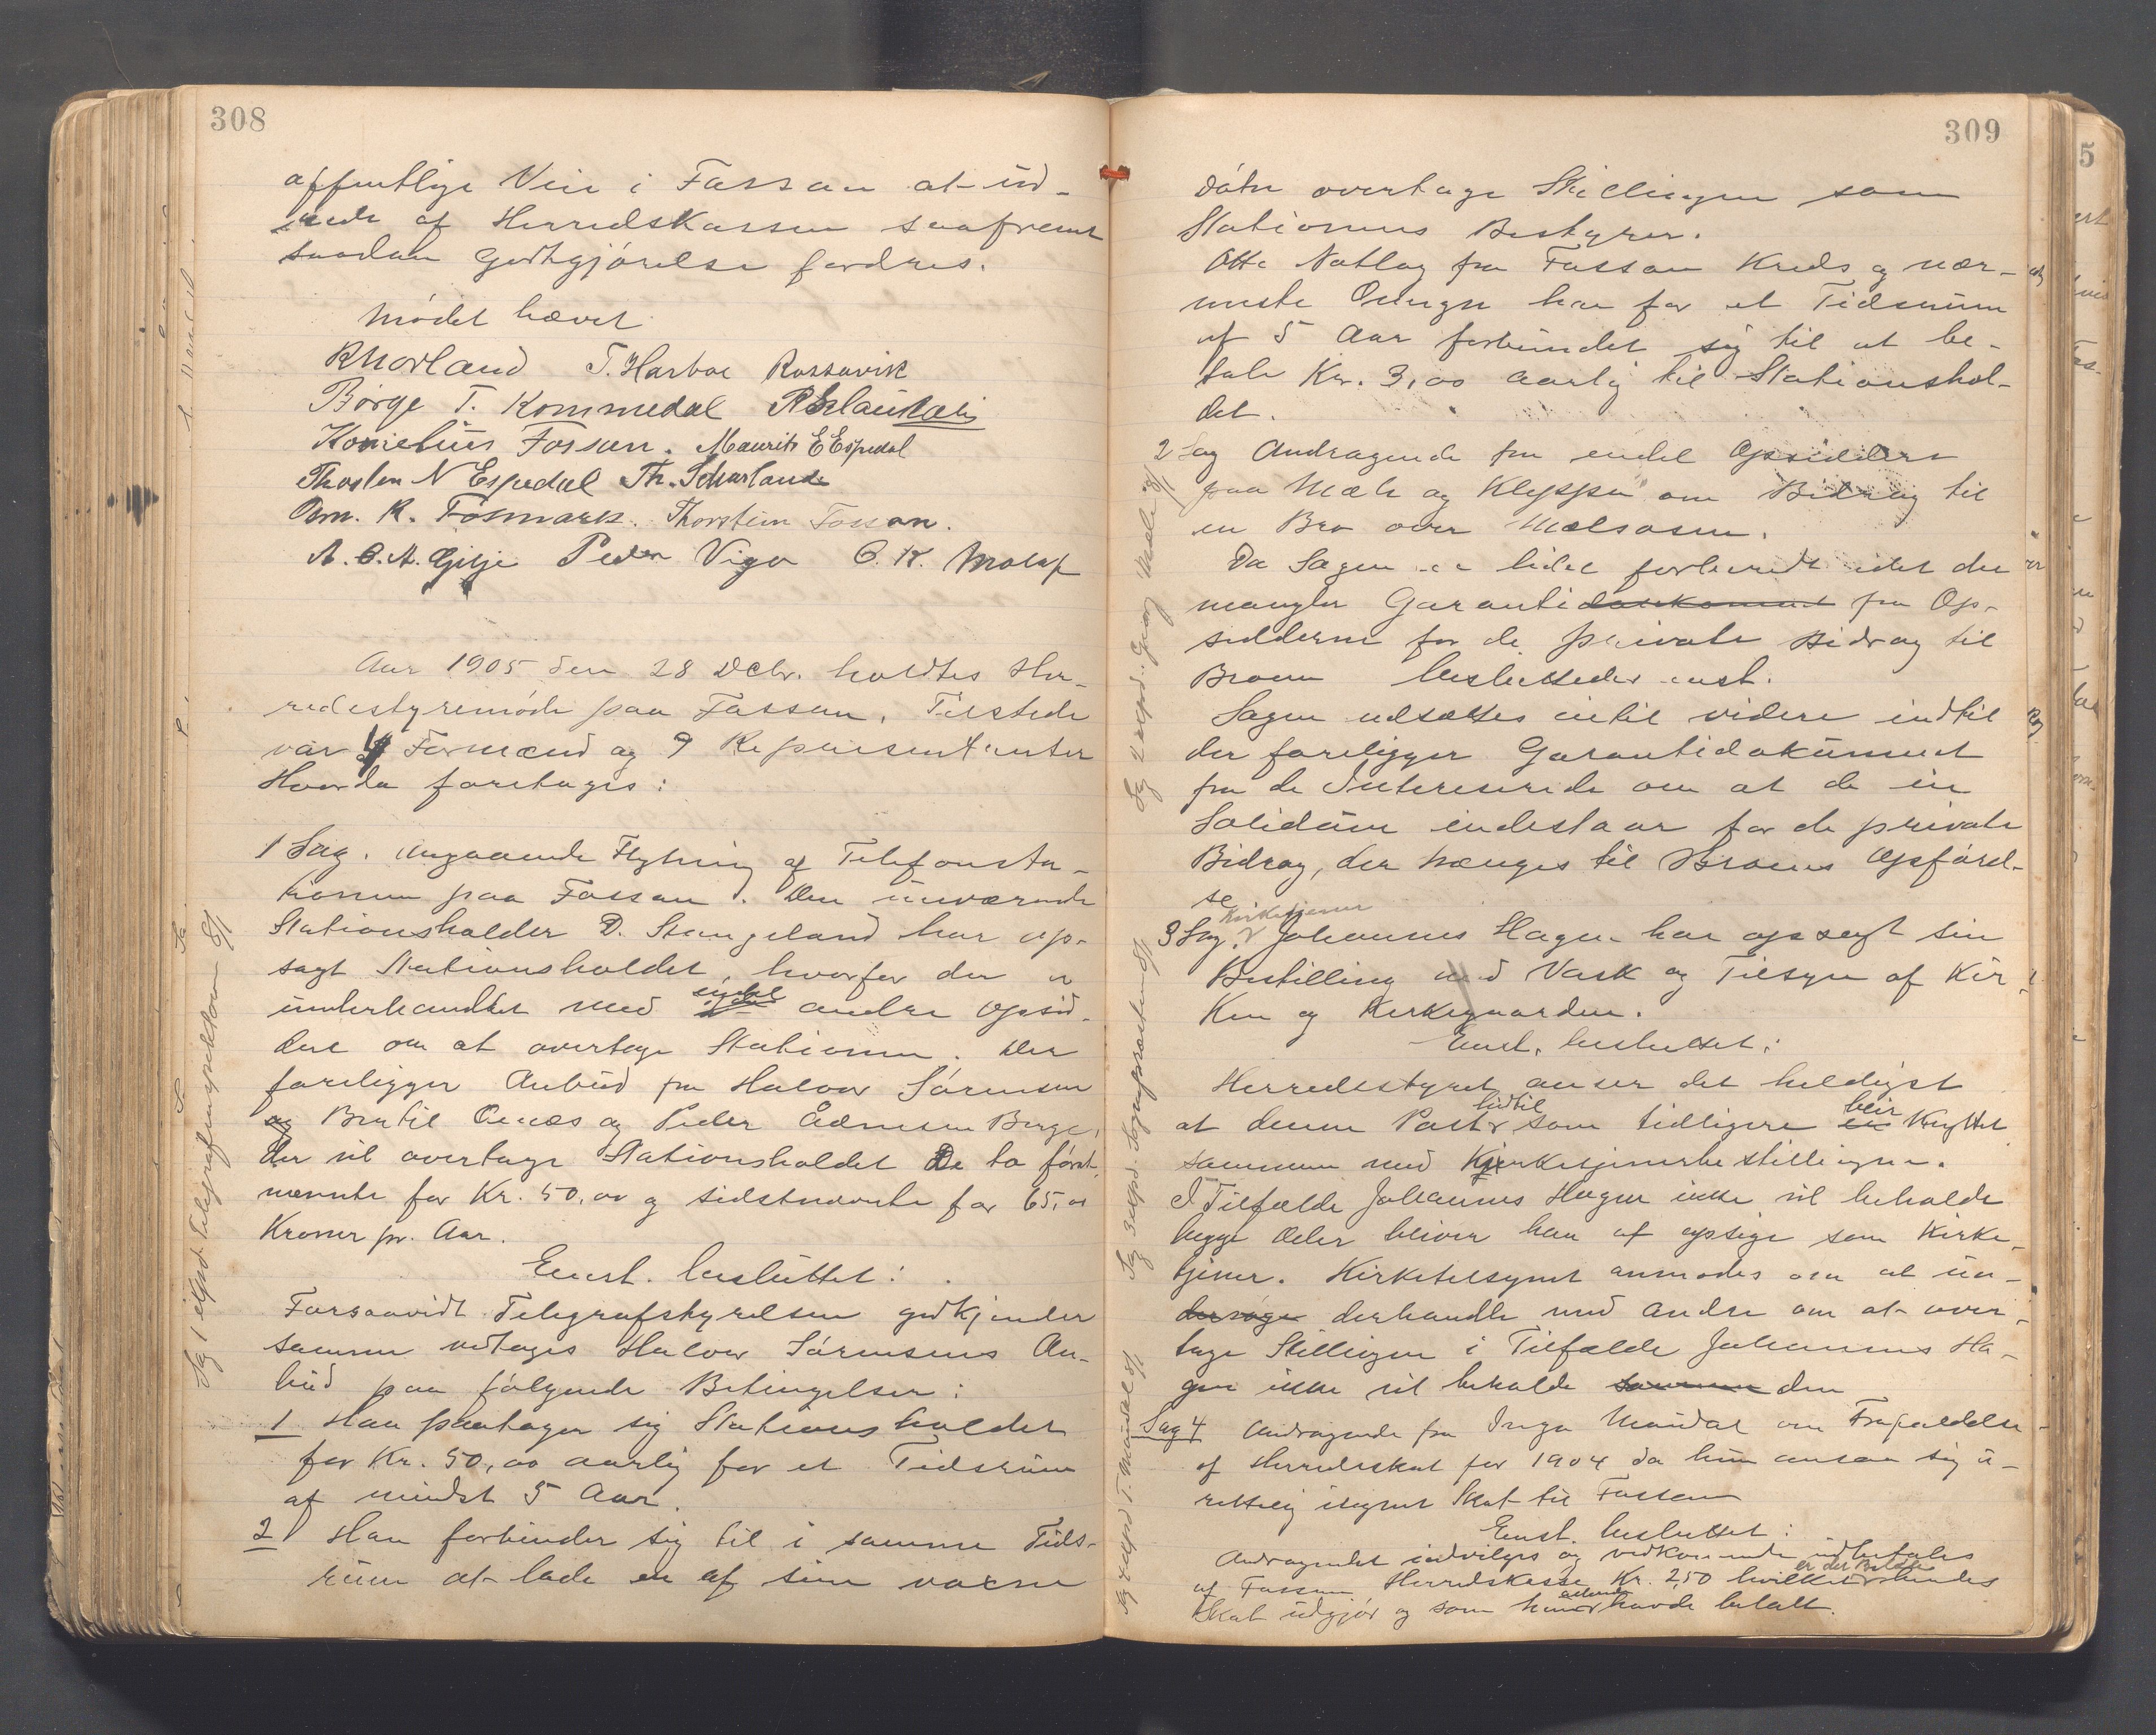 308
offentlige Veie i Fossan at ud-
rede af Herredskassen saafremt
saadan Godtgjørelse fordres.
Mødet hævet
R Morland T. Harboe Rossavik
Børge T. Kommedal
Kornelius Fossan. Maurits E Espedal
Thosten N Espedal Th. Scharland
Om. K. Fosmark. Thorstein Fossan.
A. C. A. Gilje Peder Viga O. K. Molaf
Aar 1905 den 28 Dcbr. holdtes Her-
redsstyremøde paa Fossan. Tilstede
var 4 Formænd og 9 Repræsentanter
Hvorda foretoges:
1 Sag. Angaaende Flytning af Telefonsta-
tionen paa Fossan. Den nuværende
Stationsholder D. Stangeland har op-
sagt Stationsholdet, hvorfor der er
underhandlet med andre Opsid-
dere om at overtage Stationen. Der
foreligger Anbud fra Halvor Sørensen
og Bertil Oenæs og Peder Ådnesen Berge,
der vil overtage Stationsholdet De to først-
nævnte for Kr. 50,00 og sidstnævnte for 65,00
Kroner pr. Aar.
Enst. besluttet:
Forsaavidt Telegrafstyrelsen godkjender
samme vedtages Halvor Sørensens An-
bud paa følgende Betingelser:
1 Han paatager sig Stationsholdet
for Kr. 50,00 aarlig for et Tidsrum
af mindst 5 Aar.
2 Han forbinder sig til i samme Tids-
rum at lade en af sine voxne
Sag 1 exped. Telegrafinspektøren 8/1
309
døtre overtage Stillingen som
Stationens Bestyrer.
Otte Matlag fra Fossan Kreds og nær-
meste Omegn har for et Tidsrum
af 5 Aar forbundet sig til at be-
tale Kr. 3,00 aarlig til Stationshol-
det.
2 Sag Andragende fra endel Opsiddere
paa Mæle og Kleppa om Bidrag til
en Bro over Mælsosen.
Da Sagen er lidet forberedt idet der
mangler Garantidokument fra Op-
sidderne for de private Bidrag til
Broen besluttedes enst.
Sagen udsættes indtil videre indtil
der foreligger Garantidokument
fra de Interesserede om at de in
Solidum indestaar for de private
Bidrag, der trænges til Broens Opførel-
se
Kirketjener
3 Sag. Johannes Hagen har opsagt sin
Bestilling med Vask og Tilsyn af Kir-
ken og Kirkegaarden.
Enst. besluttet:
Herredsstyret anser det heldigst
hidtil bliv
at denne Post som tidligere er Knyttet
sammen med Kirketjenerbestillingen.
I Tilfælde Johannes Hagen ikke vil beholde
begge Deler bliver han at opsige som Kirke-
tjener. Kirketilsynet anmodes om at un-
dersøge derhandle med andre om at over-
tage Stillingen i Tilfælde Johannes Ha-
gen ikke vil beholde samme den
Sag 4 Andragende fra Inga Maudal om Frafaldelse
af Herredsskat for 1904 da hun ansaa sig u-
rettelig ilignet Skat til Fossan
Enst. besluttet:
Andragendet indvilges og vedkommende udbetales
er det Beløb
af Fossan Herredskasse Kr. 2,50 hvilket hendes
allerede
Skat udgjør og som hun havde betalt.
Sag 4 exped T. Maudal 8/1